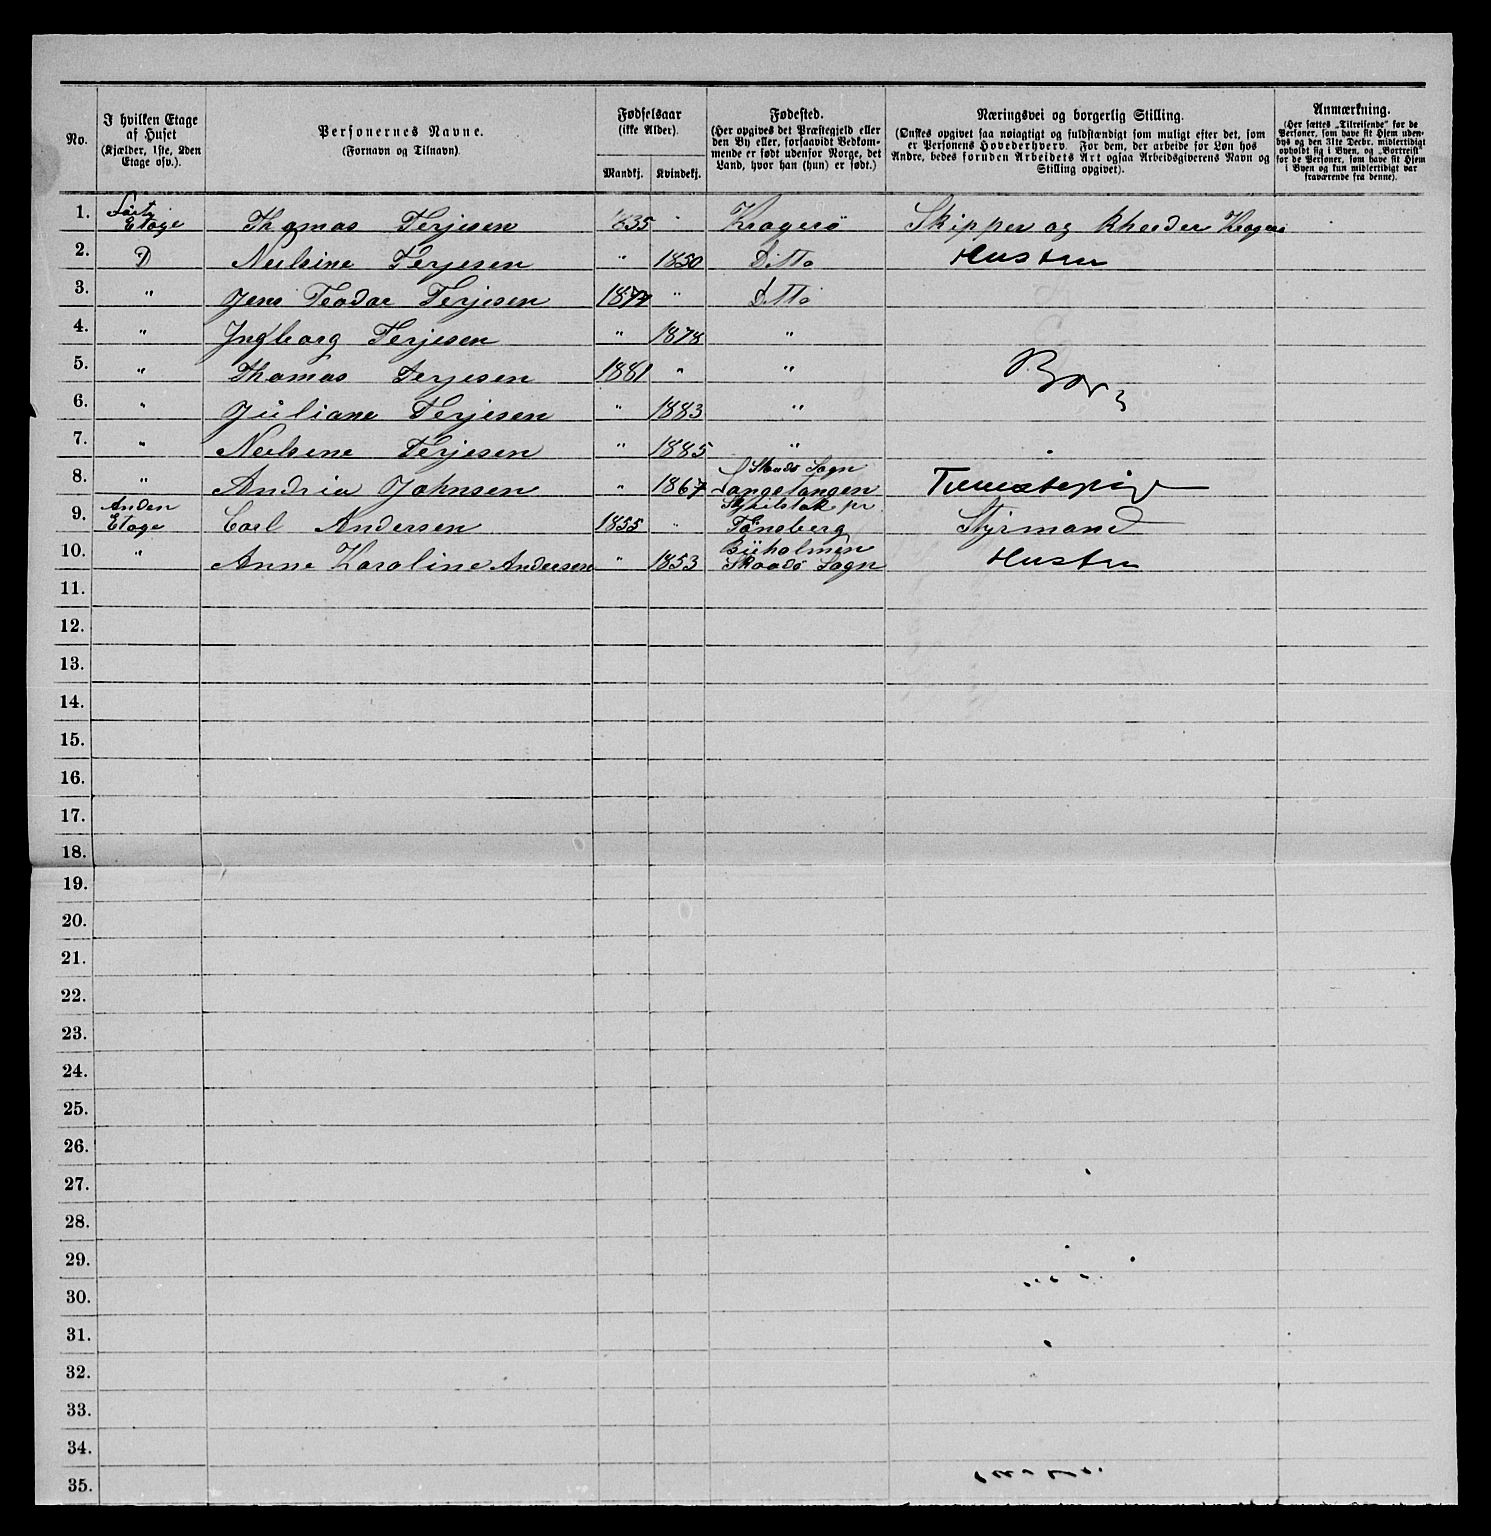 No.
I hvilken Etage af Huset (Kjælder, 1ste, 2den Etage osv.).
Personernes Navne. (Fornavn og Tilnavn).
Fødselsaar (ikke Alder).
Mandkj. Kvindekj.
Fødested. (Her opgives det Præstegjeld eller den By eller, forsaavidt Bedkommende er født udenfor Norge, det Land, hvor han (hun) er født.)
Næringsvei og borgerlig Stilling. (Ønskes opgivet saa nøiagtigt og fuldstændigt som muligt efter det, som er Personens Hovederhverv. For dem, der arbeide for Løn hos Andre, bedes foruden Arbeidets Art ogsaa Arbeidsgiverens Navn og Stilling opgivet).
Anmærkning. (Her sættes „Tilreisende" for de Personer, som have sit Hjem udenbys og den 31te Decbr. midlertidigt opholdt sig i Byen, og „Bortreist" for de Personer, som have sit Hjem i Byen og kun midlertidigt var fraværende fra denne).
1. Etage Thomas Terjesen 1835 " Kragerø Skipper og Rheeder
2. D Neilsine Terjesen " 1850 Ditto Hustru
3. " Jens Teodor Terjesen 1877 " Ditto
4. " Ingborg Terjesen " 1878 "
5. " Thomas Terjesen 1881 " "
Børn
6. " Juliane Terjesen " 1883 "
7. " Neilsine Terjesen " 1885 "
8. " Andria Johnsen " 1867 Skaadø Sogn Langetangen
9. Anden Etage Carl Andersen 1855 " Tønsberg Styrmand
10. " Anne Karoline Andersen " 1853 Skaadø Sogn Hustru
11.
12.
13.
14.
15.
16.
17.
18.
19.
20.
21.
22.
23.
24.
25.
26.
27.
28.
29.
30.
31.
32.
33.
34.
35.